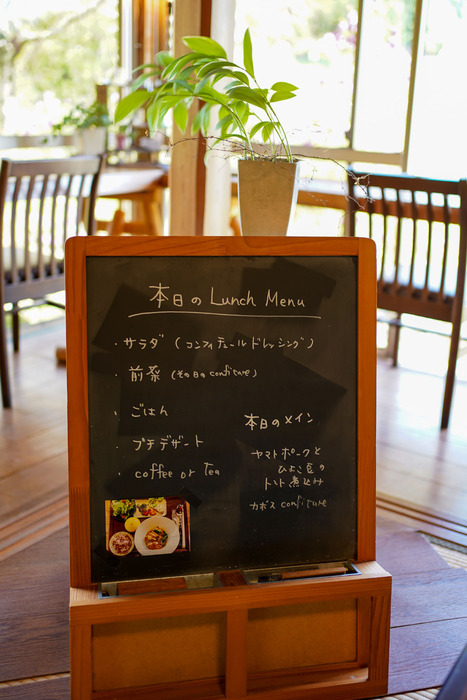 本日の Lunch Menu
・サラダ (コンフィチュールドレッシング)
・前菜 (その日のconfiture)
・ごはん
・プチデザート
・coffee or Tea
本日のメイン
ヤマトポークと
ひよこ豆の
トマト煮込み
カボス confiture